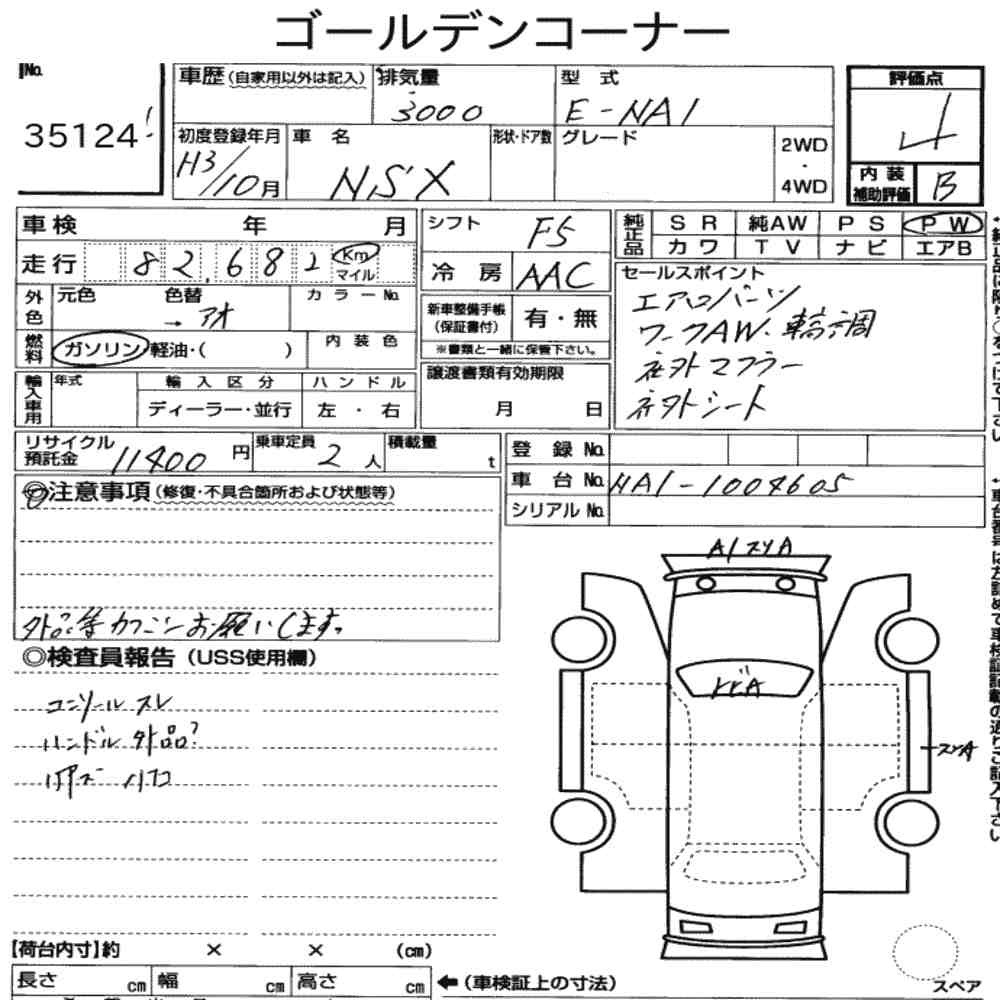 ゴールデンコーナー
No.
35124
車歴 (自家用以外は記入)
排気量
3000
型 式
E-NA1
評価点
4
初度登録年月
H3/10月
車 名
NSX
形状・ドア数
グレード
2WD
・
4WD
内 装
補助評価
B
車検 年 月
シフト
F5
純正品
SR 純AW PS PW
カワ TV ナビ エアB
走行
82,682
Km
マイル
冷 房
AAC
セールスポイント
エアロパーツ
ワークAW、車高調
社外マフラー
社外シート
外色
元色 色替
→アオ
カラーNo.
新車整備手帳
(保証書付)
有・無
※書類と一緒に保管下さい。
燃料
ガソリン・軽油・( )
内装色
輸入車用
年式
輸入区分
ハンドル
ディーラー・並行
左 ・ 右
譲渡書類有効期限
月 日
リサイクル
預託金
11400円
乗車定員
2人
積載量
t
登 録 No.
車 台 No.
NA1-1004605
シリアル No.
◎注意事項 (修復・不具合箇所および状態等)
外品等カクニンお願いします。
◎検査員報告 (USS使用欄)
コンソール スレ
ハンドル 外品?
A1スリA
トビA
スリA
【荷台内寸】約 × × (cm)
長さ cm 幅 cm 高さ cm
←(車検証上の寸法)
スペア